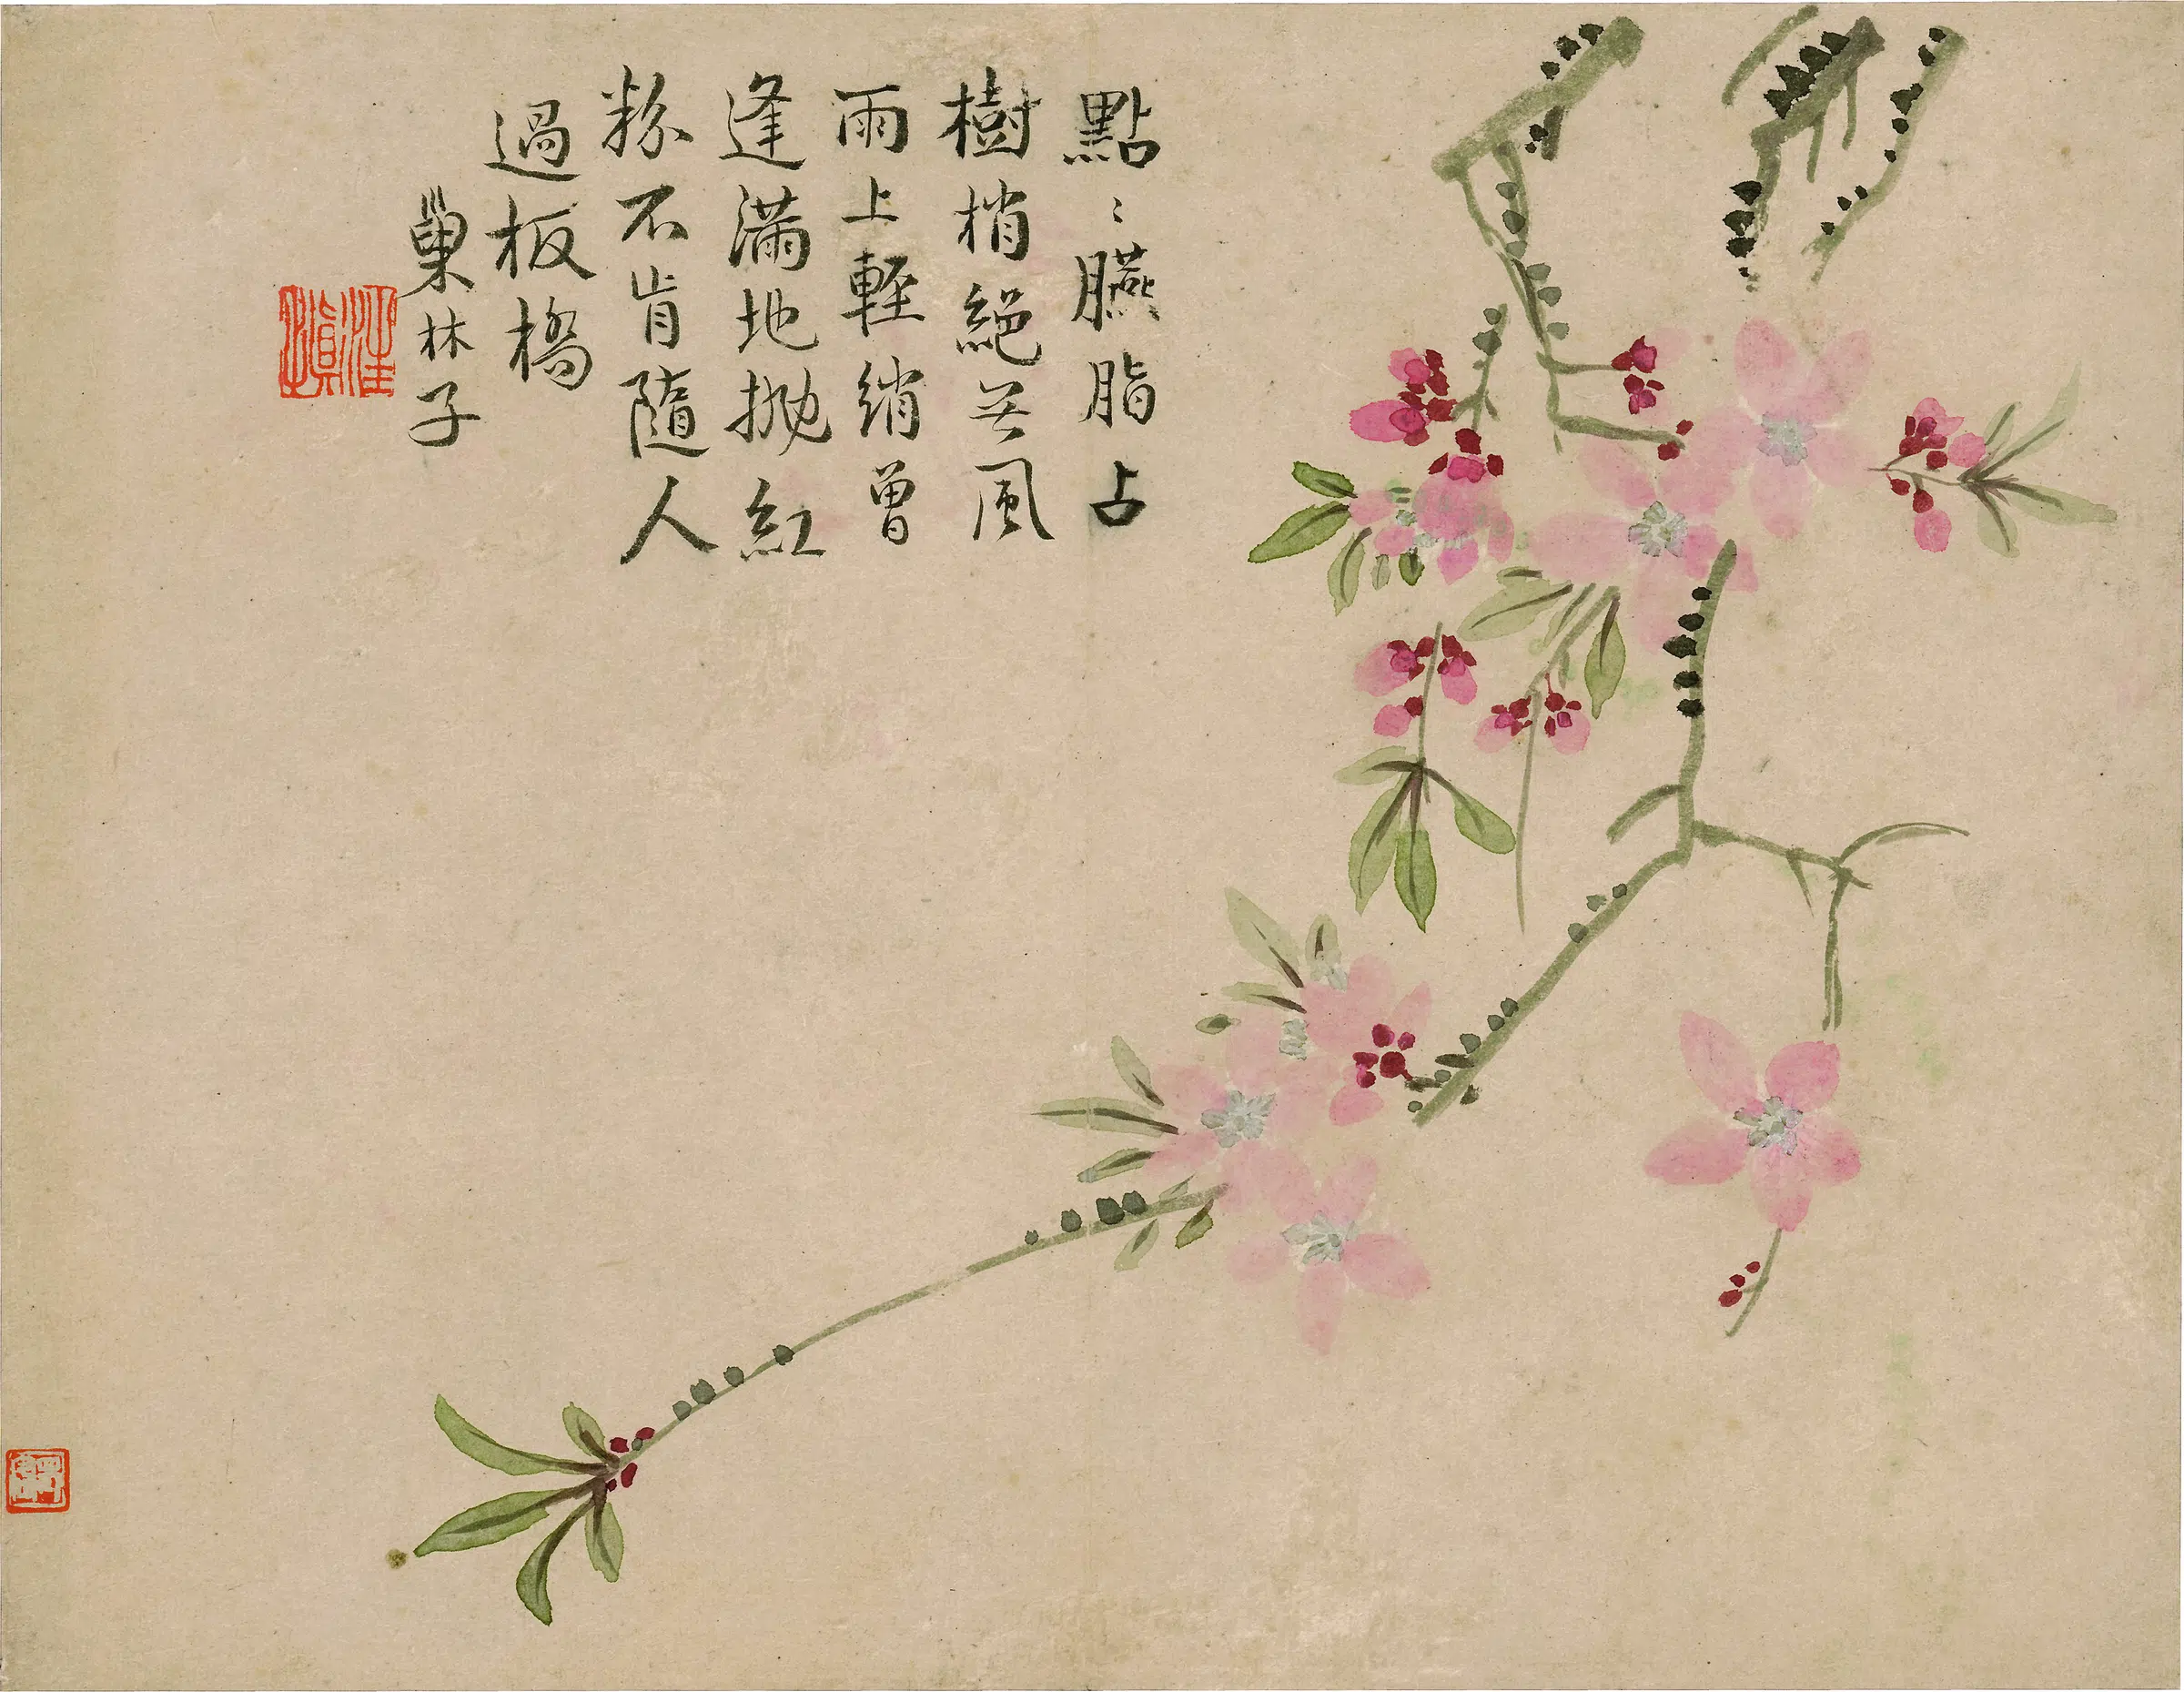 點〻臙脂占
樹梢絕无風
雨上輕綃曾
逢滿地拋紅
粉不肯隨人
過板橋
巢林子
汪士慎